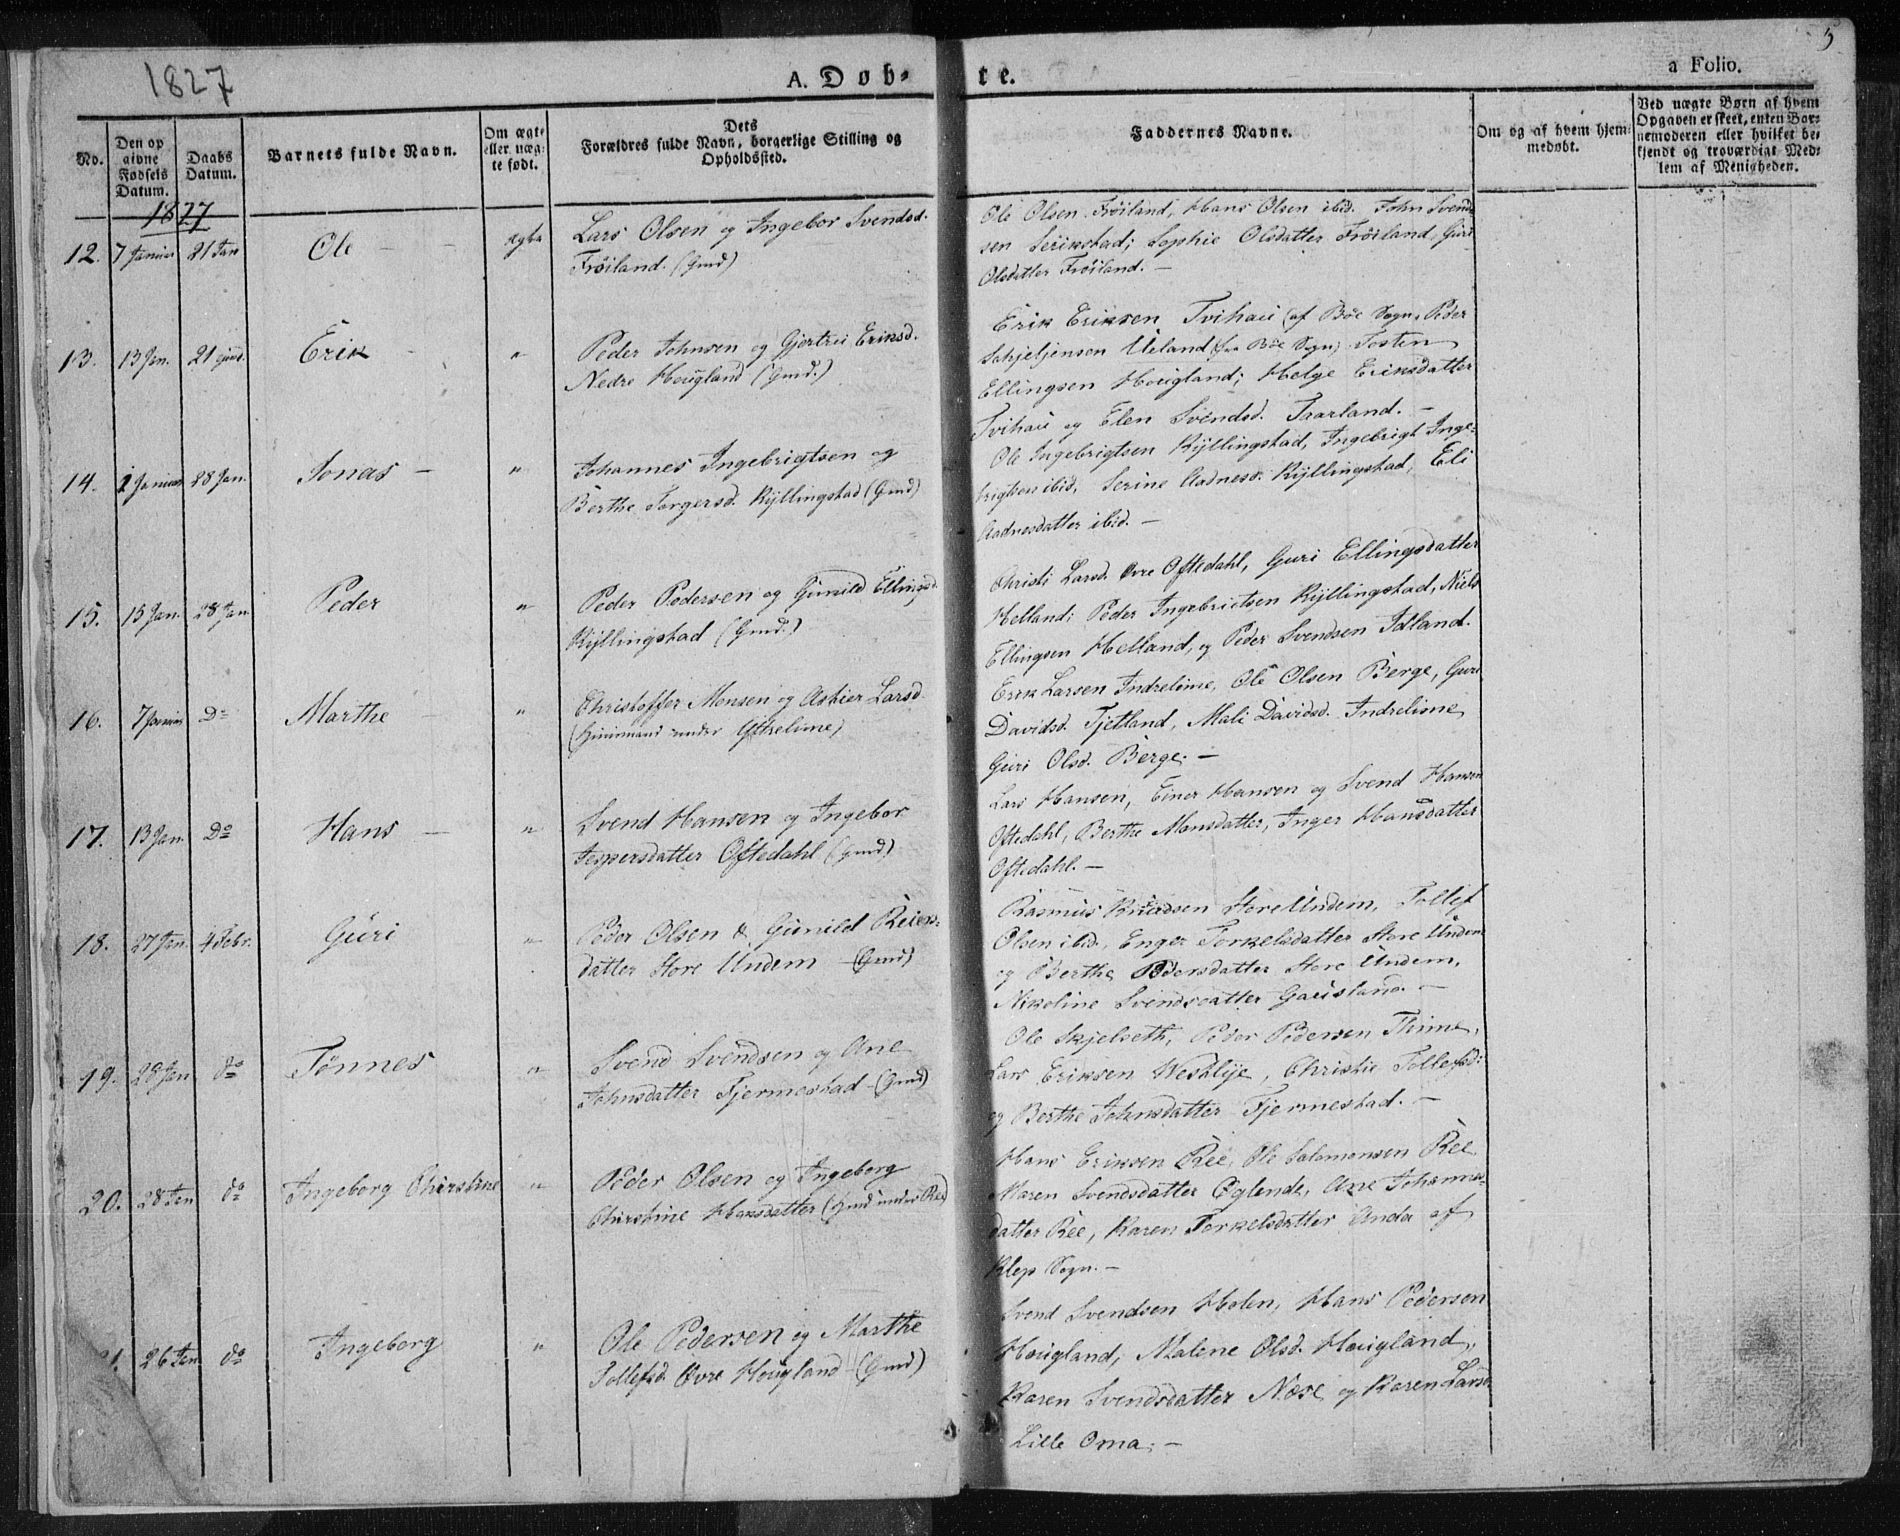 1827
A. Døb-
te.
5
a Folio.
No.
Den op
givne
Fødsels
Datum.
Daabs
Datum.
Barnets fulde Navn.
Om ægte
eller uæg-
te født.
Dets
Forældres fulde Navn, borgerlige Stilling og
Opholdssted.
Faddernes Navne.
Om og af hvem hjem-
medøbt.
Ved uægte Børn af hvem
Opgaven er skeet, enten Bar-
nemoderen eller hvilket be-
kjendt og troværdigt Med-
lem af Menigheden.
1827
12. 7 Januar 21 Jan Ole ægte
Lars Olsen og Ingebor Svendsd.
Frøiland. (Gmd)
Ole Olsen Frøiland, Hans Olsen ibid. John Svend
sen Serikstad; Sophie Olsdatter Frøiland, Guri
Olsdatter Frøiland. —
13. 13 Jan. 21 Erik "
Peder Johnsen og Gjertrei Eriksd.
Nedre Hougland (Gmd.)
Erik Eriksen Tvihaui (af Bøe Sogn, Peder
Schjeljensen Ueland (fra Bøe Sogn) Tosten
Ellingsen Hougland; Helge Eriksdatter
Tvihaui og Elen Svendsd. Taarland. —
14. Januar 28 Jan. Jonas — "
Johannes Ingebrigtsen og
Berthe Torgersd. Kyllingstad (Gmd)
Ole Ingebrigtsen Kyllingstad, Ingebrigt Inge-
brigtsen ibid, Serine Aadnesd. Kyllingstad, Eli
Aadnesdatter ibid. —
15. 15 Jan. 28 Jan. Peder "
Peder Pedersen og Gunild Ellingsd.
Kyllingstad (Gmd.)
Christi Larsd. Øvre Oftedahl, Guri Ellingsdatter
Helland; Peder Ingebrictsen Kyllingstad, Niels
Ellingsen Helland, og Peder Svendsen Idland.
16. 7 Januar Do Marthe "
Christoffer Monsen og Larsd.
(Huusmand under )
Erik Larsen Indrelime, Ole Olsen Berge, Guri
Davidsd. Tjetland, Mali Davidsd. Indrelime
Guri Olsd. Berge. —
17. 13 Jan. Do Hans — "
Svend Hansen og Ingebor
Jespersdatter Oftedahl (Gmd)
Lars Hansen, Einer Hansen og Svend Hansen
Oftedahl, Berthe Monsdatter, Inger Hansdatter
Oftedahl. —
18. 27 Jan. 4 Febr. Guri "
Peder Olsen & Gunild Reiers-
datter Store Undem (Gmd)
Rasmus Knudsen Store Undem, Tollef
Olsen ibid., Enger Torkelsdatter Store Undem
og Berthe Pedersdatter Store Undem,
Nikoline Svendsdatter Gausland. —
19. 28 Jan do Tønnes "
Svend Svendsen og Ane
Johnsdatter Tjermestad (Gmd)
Ole Skjelseth, Peder Pedersen Thime,
Lars Eriksen Westlye, Christie Tollefsd:
og Berthe Johnsdatter Tjermestad. —
20. 28 Jan do Ingeborg Christine "
Peder Olsen og Ingeborg
Christine Hansdatter (Hmd under Ree)
Hans Eriksen Ree, Ole Salomonsen Ree
Maren Svendsdatter Øglende, Ane Johannes-
datter Ree, Karen Torkelsdatter Anda af
Klep Sogn. —
21. 26 Jan do Ingeborg "
Ole Pedersen og Marthe
Tollefsd. Øvre Hougland (Gmd)
Svend Svendsen Holen, Hans Pedersen
Hougland; Malene Olsd. Hougland,
Karen Svendsdatter Næse og Karen Larsd.
Lille Oma. —